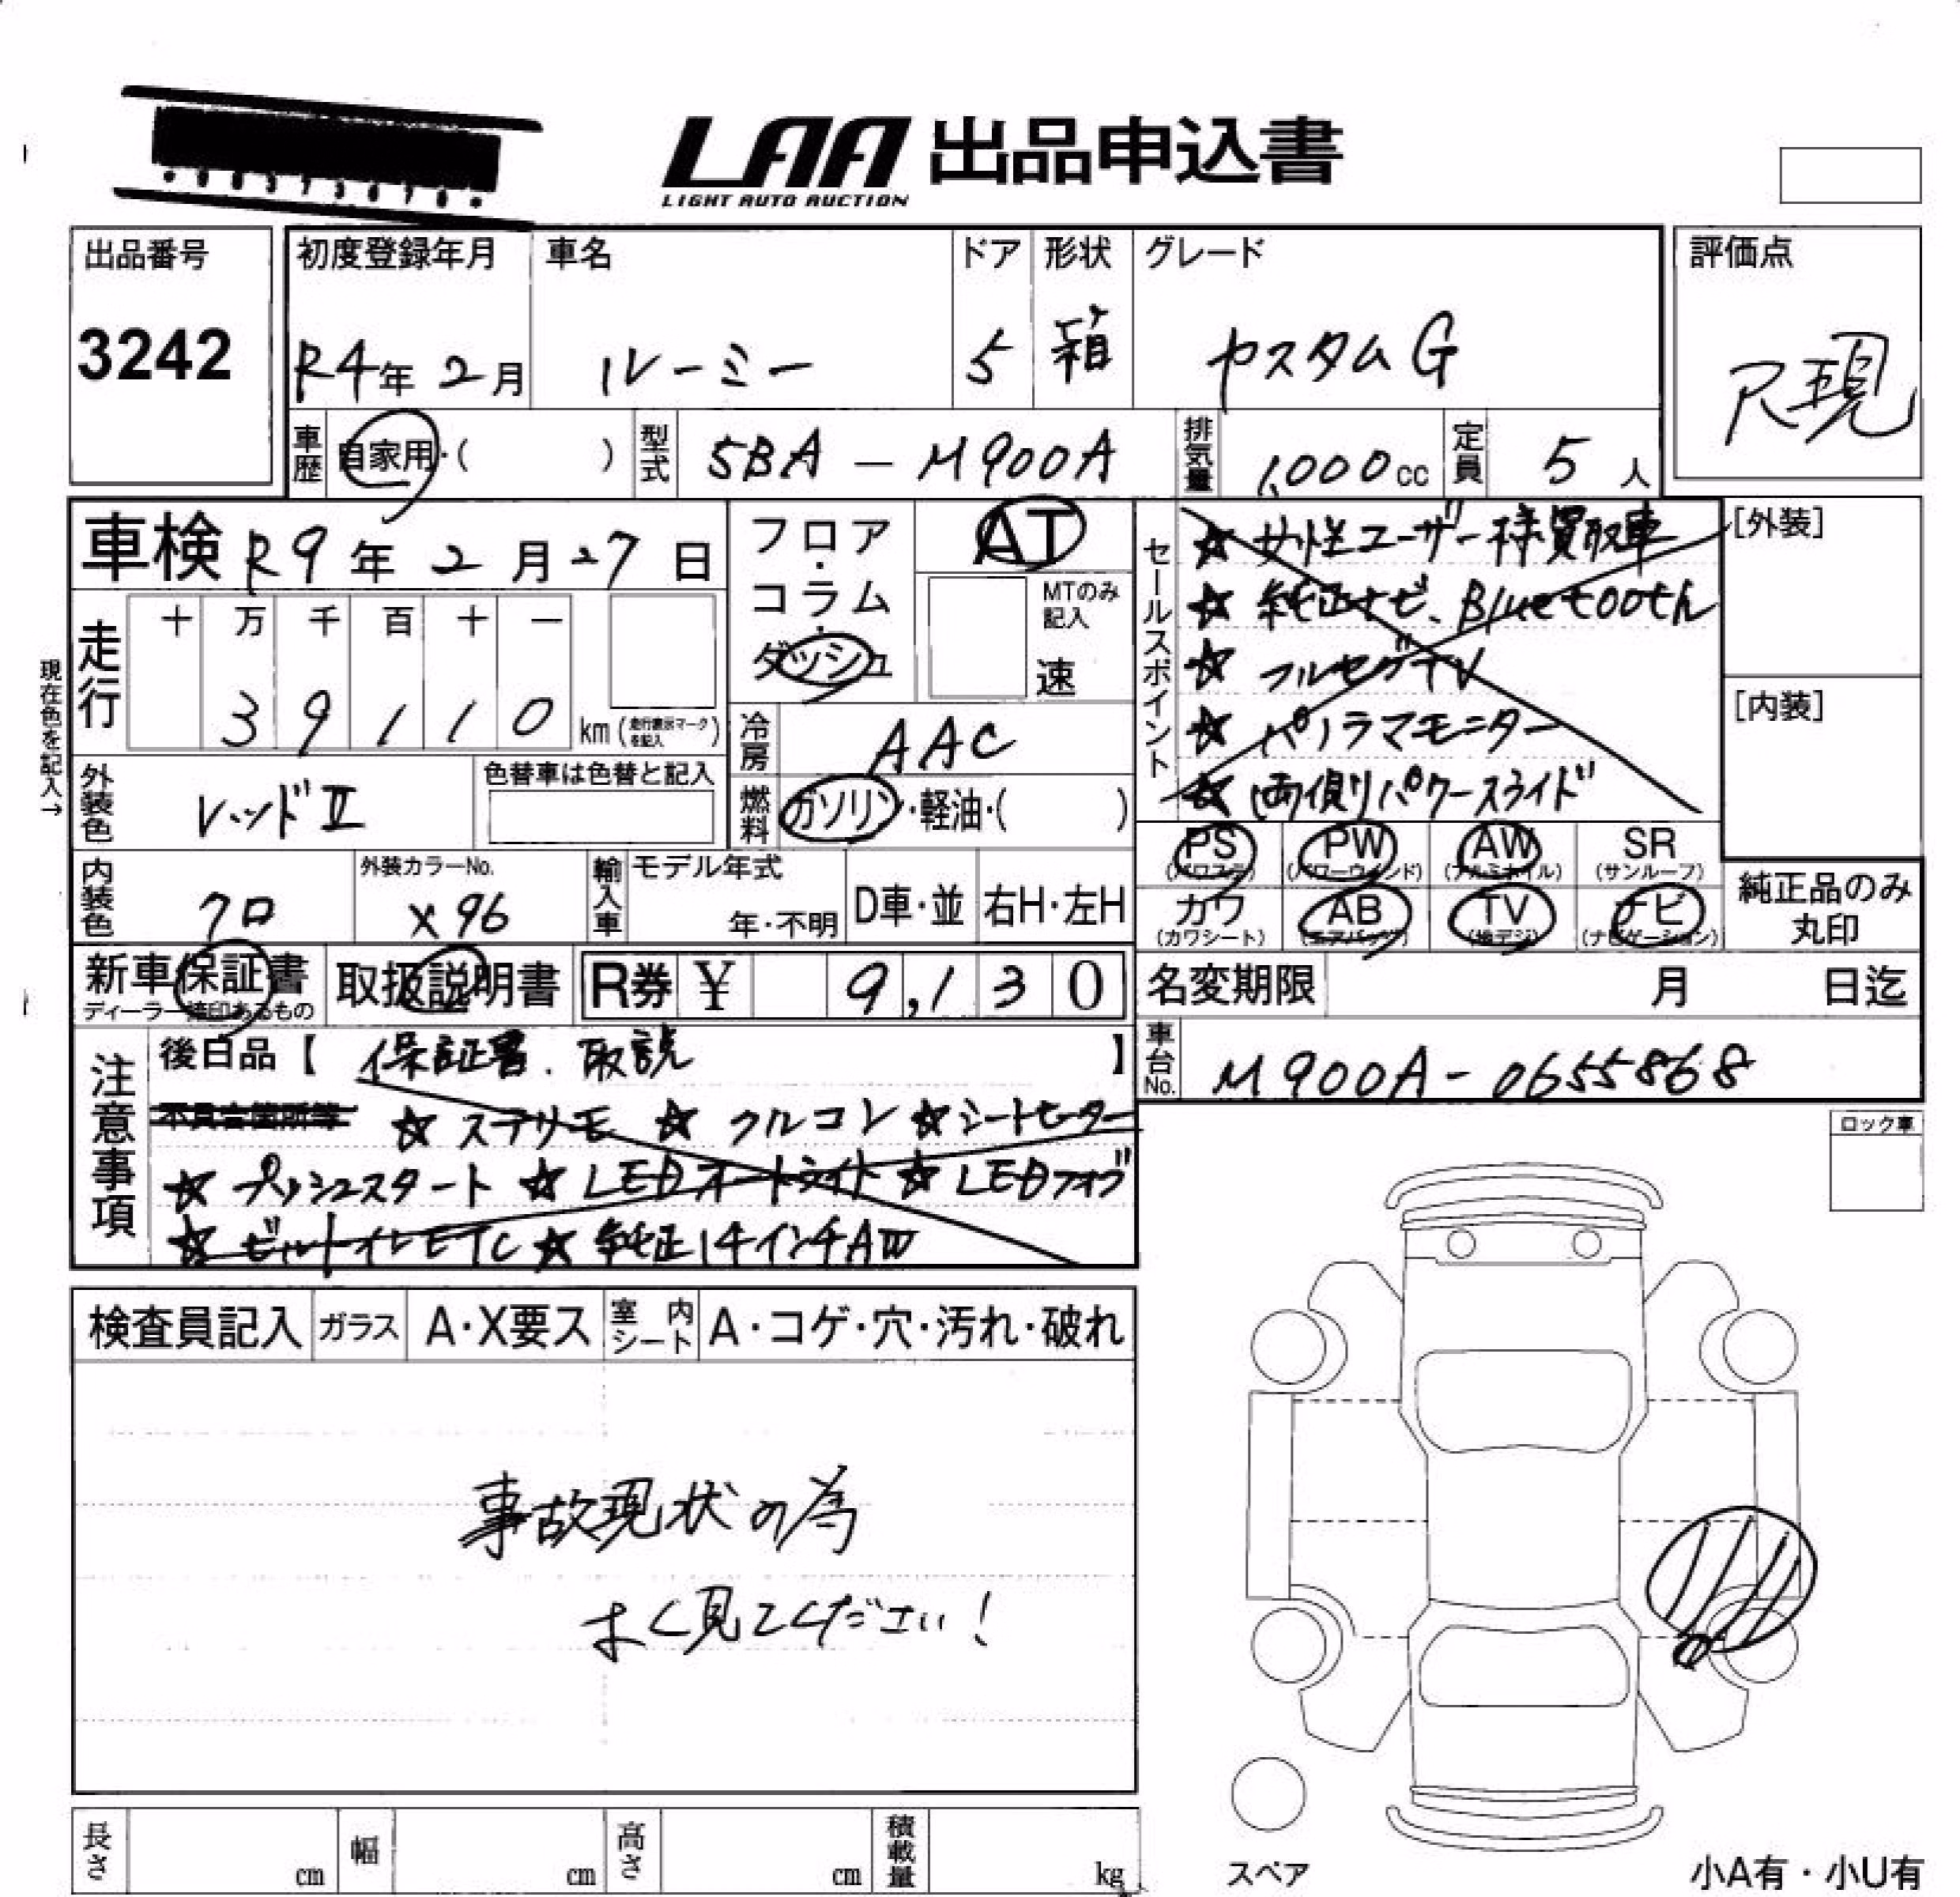 LAA 出品申込書
LIGHT AUTO AUCTION
出品番号
3242
初度登録年月
R4年 2月
車名
ルーミー
ドア
5
形状
箱
グレード
カスタムG
評価点
R現
車歴
自家用・( )
型式
5BA - M900A
排気量
1,000cc
定員
5人
車検 R9年 2月 27日
フロア・コラム・ダッシュ
AT
MTのみ記入
速
セールスポイント
☆ 女性ユーザー様買取車
☆ 純正ナビ、Bluetooth
☆ フルセグTV
☆ パノラマモニター
☆ 両側パワースライド
[外装]
[内装]
現在色を記入→
走行
十 万 千 百 十 一
3 9 1 1 0
km (走行表示マークを記入)
冷房
AAC
外装色
レッドⅡ
色替車は色替と記入
燃料
ガソリン・軽油・( )
内装色
クロ
外装カラーNo.
X96
輸入車
モデル年式
年・不明
D車・並
右H・左H
PS
(パワステ)
PW
(パワーウインド)
AW
(アルミホイル)
SR
(サンルーフ)
カワ
(カワシート)
AB
(エアバッグ)
TV
(地デジ)
ナビ
(ナビゲーション)
純正品のみ
丸印
新車保証書
ディーラー捺印あるもの
取扱説明書
R券 ¥ 9,130
名変期限 月 日迄
注意事項
後日品【 保証書、取説 】
車台No.
M900A-0655868
不具合箇所等
☆ ステリモ ☆ クルコン ☆ シートヒーター
☆ プッシュスタート ☆ LEDオートライト ☆ LEDフォグ
☆ ビルトインETC ☆ 純正14インチAW
ロック車
検査員記入
ガラス
A・X要ス
室内シート
A・コゲ・穴・汚れ・破れ
事故現状の為
よく見てください!
長さ
cm
幅
cm
高さ
cm
積載量
kg
スペア
小A有・小U有